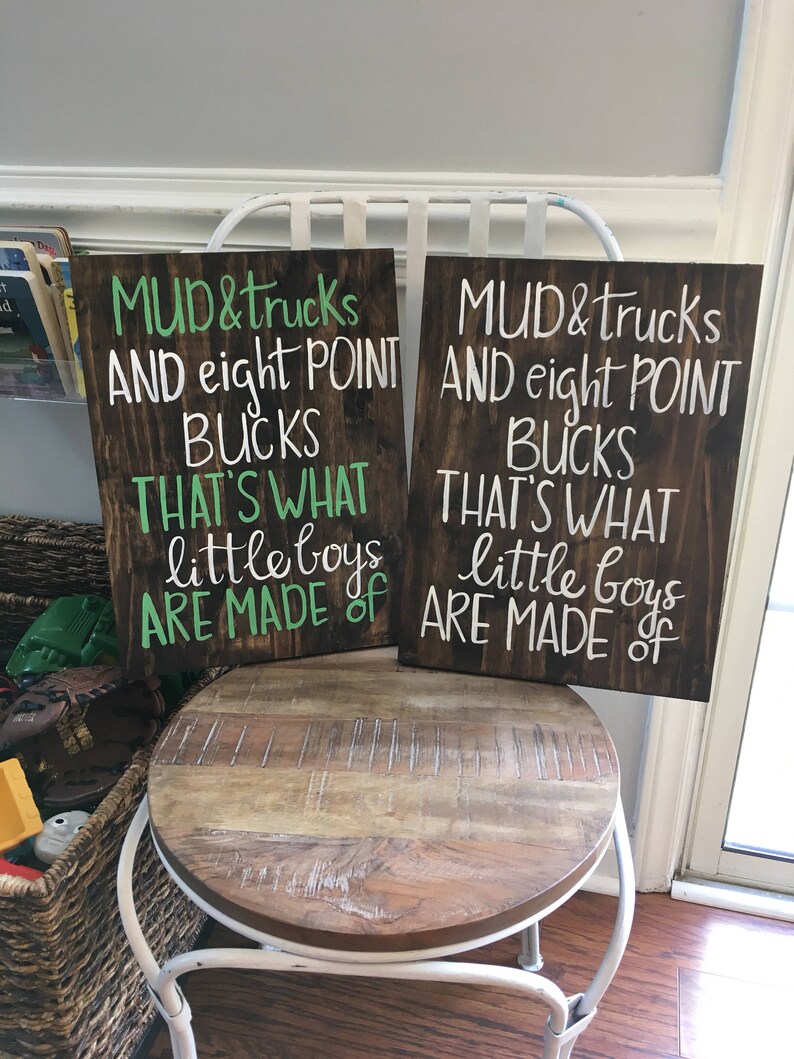 MUD & trucks
AND eight POINT
BUCKS
THAT'S WHAT
little boys
ARE MADE of
MUD & trucks
AND eight POINT
BUCKS
THAT'S WHAT
little boys
ARE MADE of